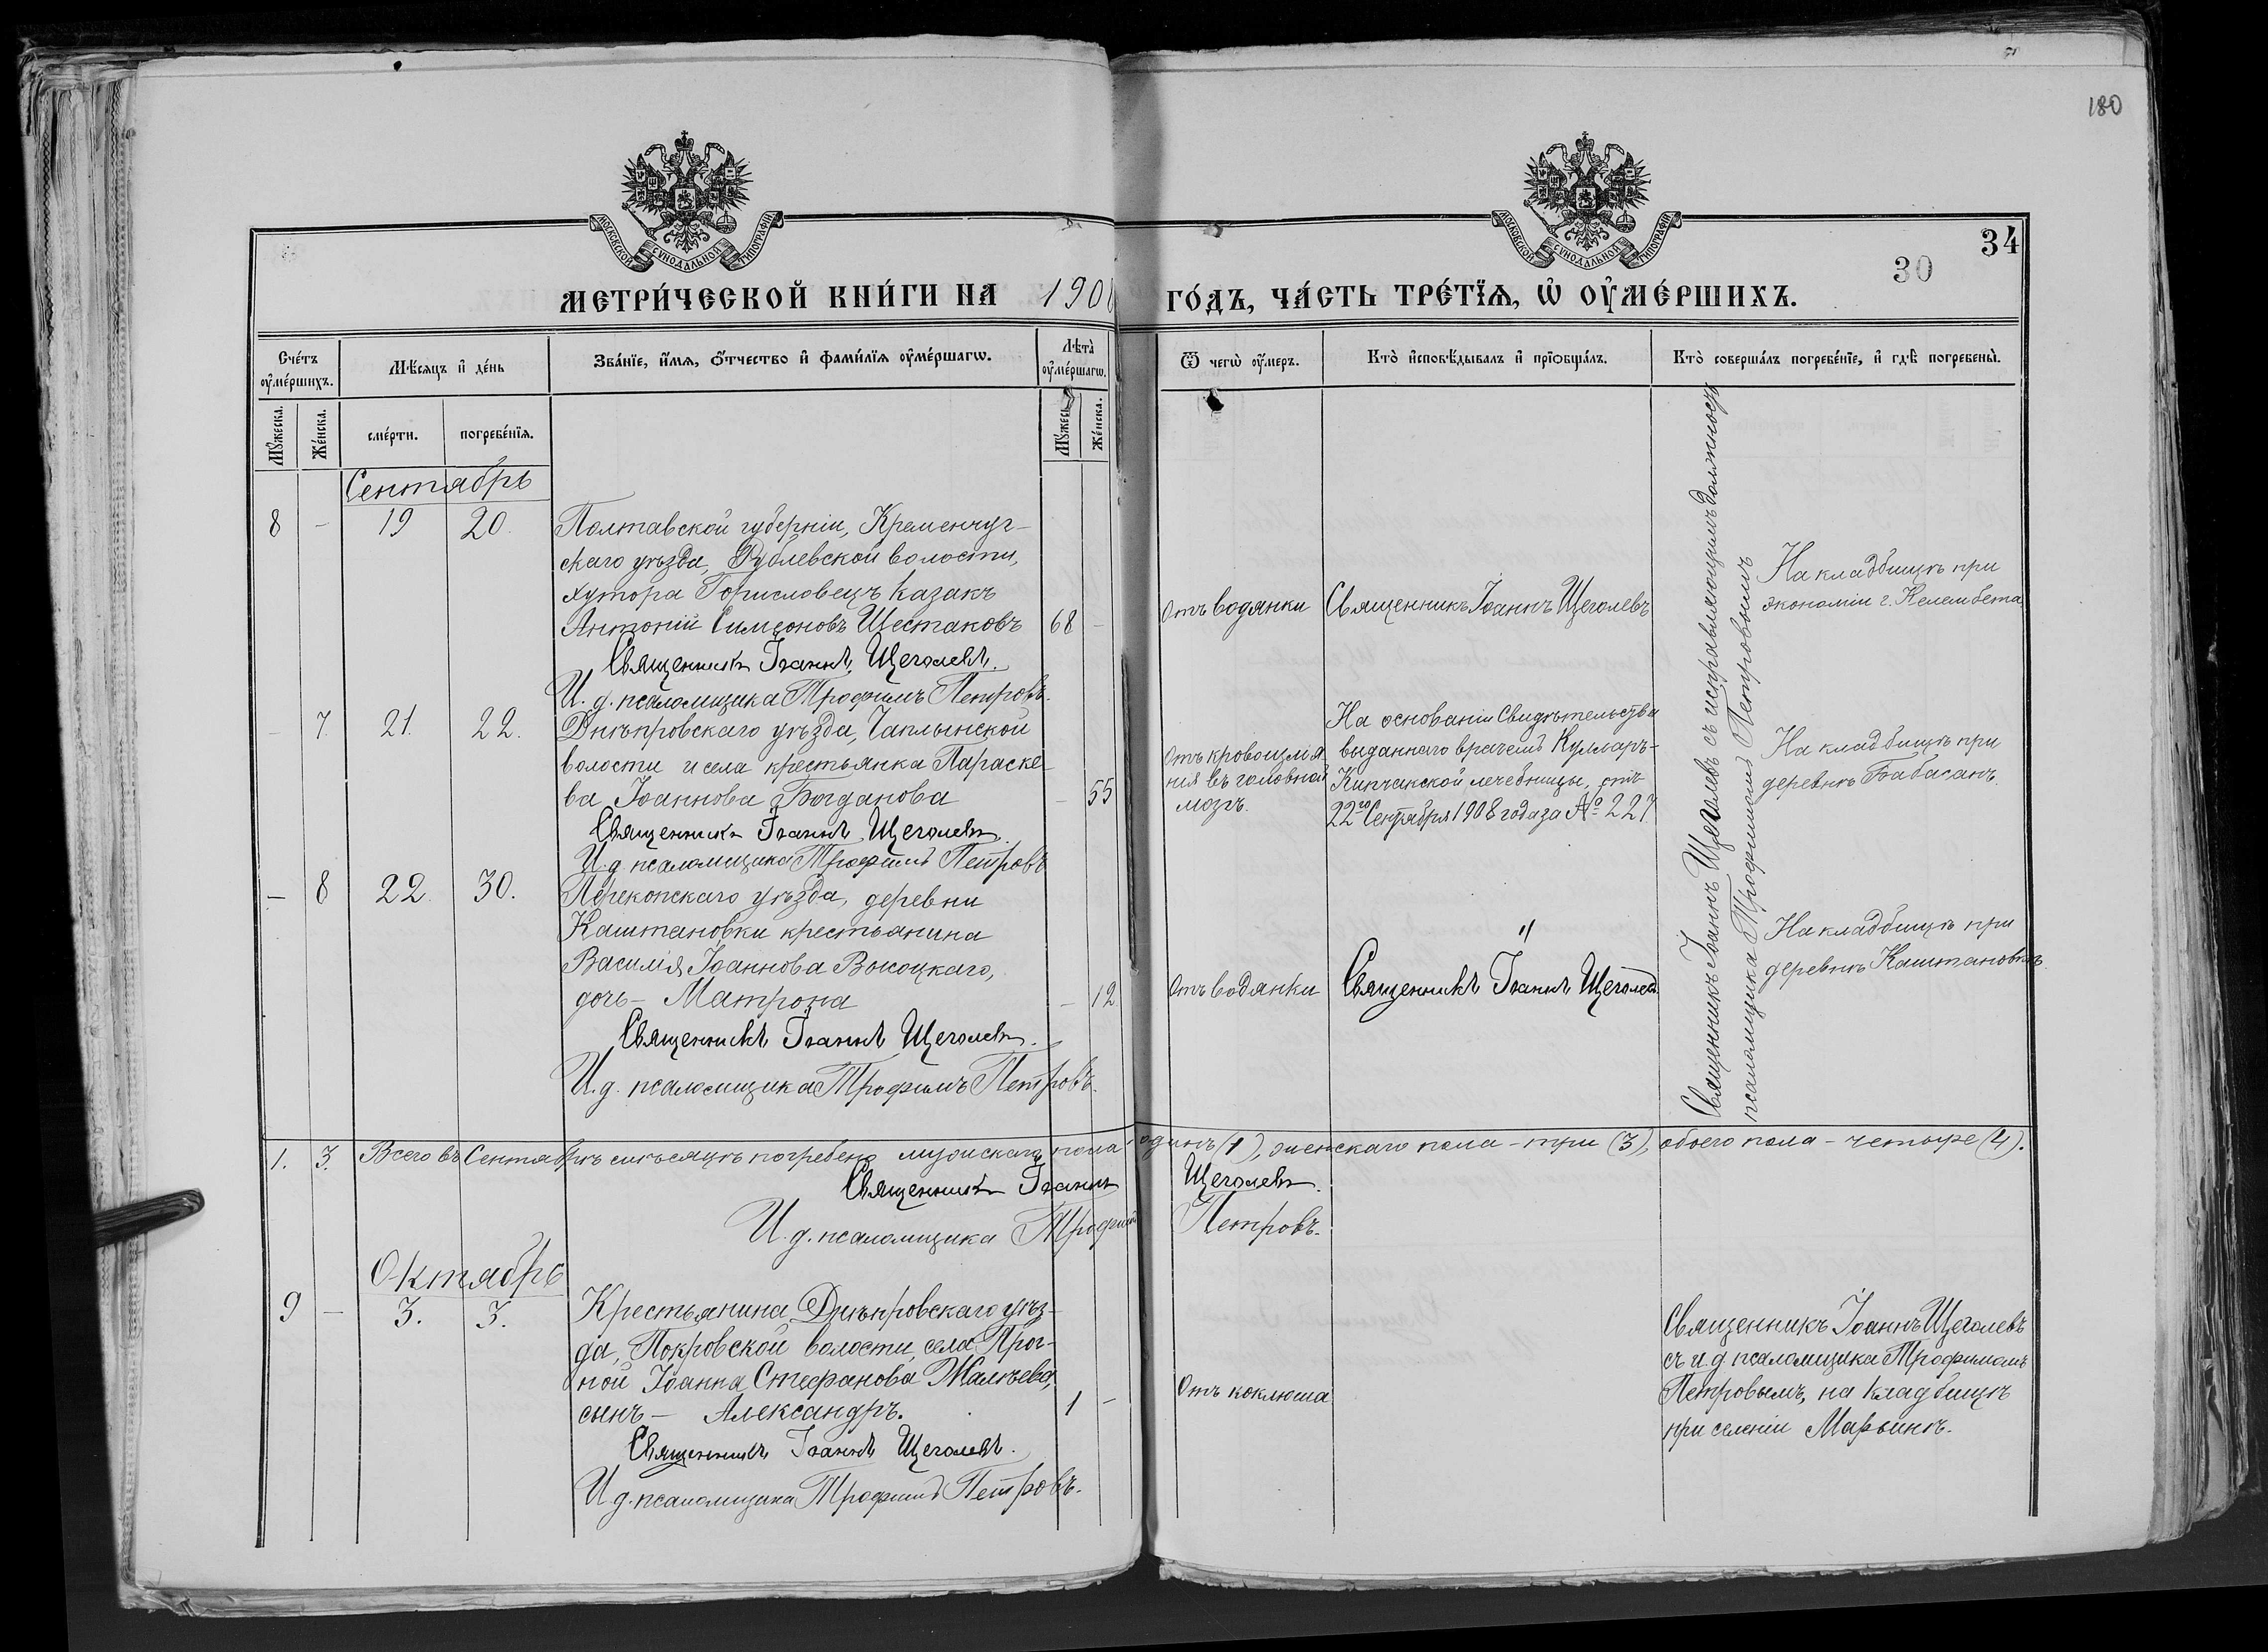 180
МОСКОВСКОЙ СУНОДАЛЬНОЙ ТИПОГРАФІИ
МОСКОВСКОЙ СУНОДАЛЬНОЙ ТИПОГРАФІИ
34
30
МЕТРИ́ЧЕСКОЙ КНИ́ГИ НА 190
ГО́ДЪ, ЧА́СТЬ ТРЕ́ТЇѦ, Ѡ҆ ОУ҆МЕ́РШИХЪ.
Сче́тъ оу҆ме́ршихъ.
Мѣ́сѧцъ и҆ де́нь
Зва́нїе, и҆́мѧ, ѻ҆́тчество и҆ фами́лїѧ оу҆ме́ршагѡ.
Лѣта̀ оу҆ме́ршагѡ.
Ѿ чегѡ̀ оу҆́меръ.
Кто̀ и҆сповѣ́дывалъ и҆ прїѡбща́лъ.
Кто̀ соверша́лъ погребе́нїе, и҆ гдѣ̀ погребены̀.
Мꙋ́жеска.
Же́нска.
сме́рти.
погребе́нїѧ.
Мꙋ́жеск
Же́нска.
Сентябрь
8 - 19 20. Полтавской губерніи, Кременчуг-
скаго уѣзда, Рублевской волости,
хутора Горисловецъ казакъ
Антоній Симеоновъ Шестаковъ 68 -
Священникъ Іоаннъ Щеголевъ.
И. д. псаломщика Трофимъ Петровъ.
Отъ водянки
Священникъ Іоаннъ Щеголевъ
На кладбищѣ при
экономіи г. Келеибета
Священникъ Іоаннъ Щеголевъ съ исправляющимъ должность
псаломщика Трофимомъ Петровымъ
- 7. 21. 22. Днѣпровскаго уѣзда, Чаплынской
волости и села крестьянка Параске-
ва Іоаннова Богданова - 55
Священникъ Іоаннъ Щеголевъ.
И. д. псаломщика Трофимъ Петровъ
Отъ кровоизлія
нія въ головной
мозгъ.
На основаніи Свидѣтельства
выданнаго врачемъ Кулларъ-
Кипчакской лечебницы, отъ
22го Сентября 1908 года за № 227
На кладбищѣ при
деревнѣ Бабасанъ
- 8 22 30. Перекопскаго уѣзда, деревни
Каштановки крестьянина
Василія Іоаннова Высоцкаго,
дочь - Матрона - 12
Священникъ Іоаннъ Щеголевъ.
И. д. псаломщика Трофимъ Петровъ.
Отъ водянки
"
Священникъ Іоаннъ Щеголевъ
На кладбищѣ при
деревнѣ Каштановкѣ
1. 3. Всего въ Сентябрѣ мѣсяцѣ погребено мужскаго пола одинъ (1), женскаго пола - три (3), обоего пола - четыре (4).
Священникъ Іоаннъ Щеголевъ.
И. д. псаломщика Трофимъ Петровъ.
Октябрь
9 - 3. 3. Крестьянина Днѣпровскаго уѣз-
да, Покровской волости, села Прог-
ной Іоанна Стефанова Малѣева,
сынъ - Александръ. 1 -
Священникъ Іоаннъ Щеголевъ.
И. д. псаломщика Трофимъ Петровъ.
Отъ коклюша
Священникъ Іоаннъ Щеголевъ
съ и. д. псаломщика Трофимомъ
Петровымъ, на кладбищѣ
при селеніи Марьинѣ.